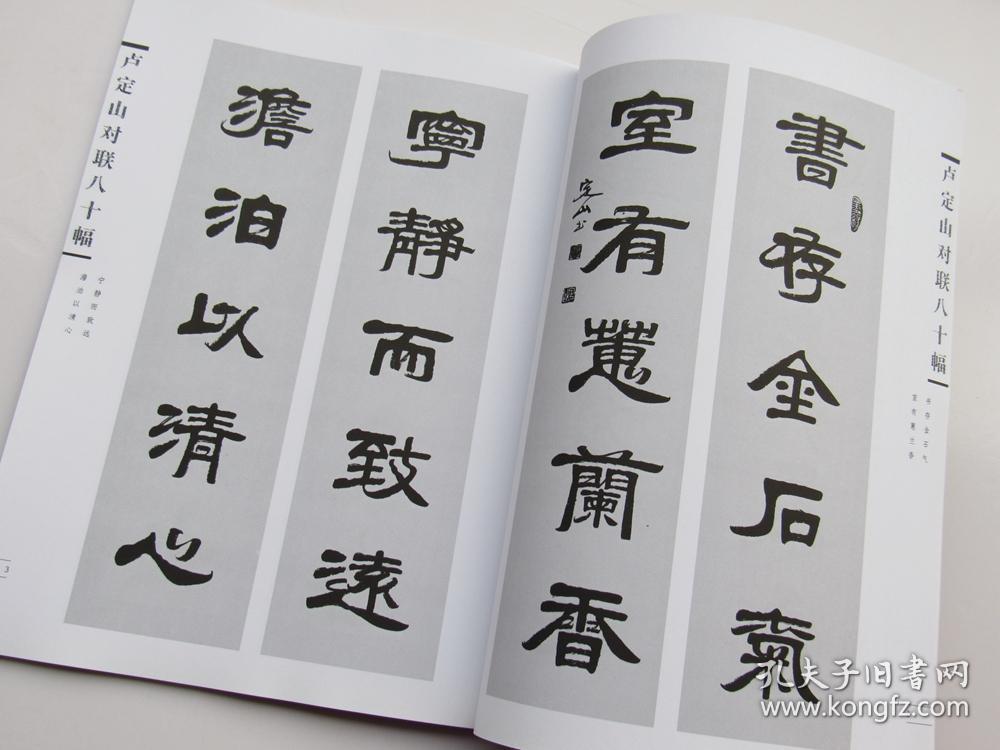 卢定山对联八十幅
书存金石气
室有蕙兰香
書存金石氣
室有蕙蘭香
定山书
寧靜而致遠
澹泊以清心
卢定山对联八十幅
宁静而致远
澹泊以清心
3
孔夫子旧書网
www.kongfz.com